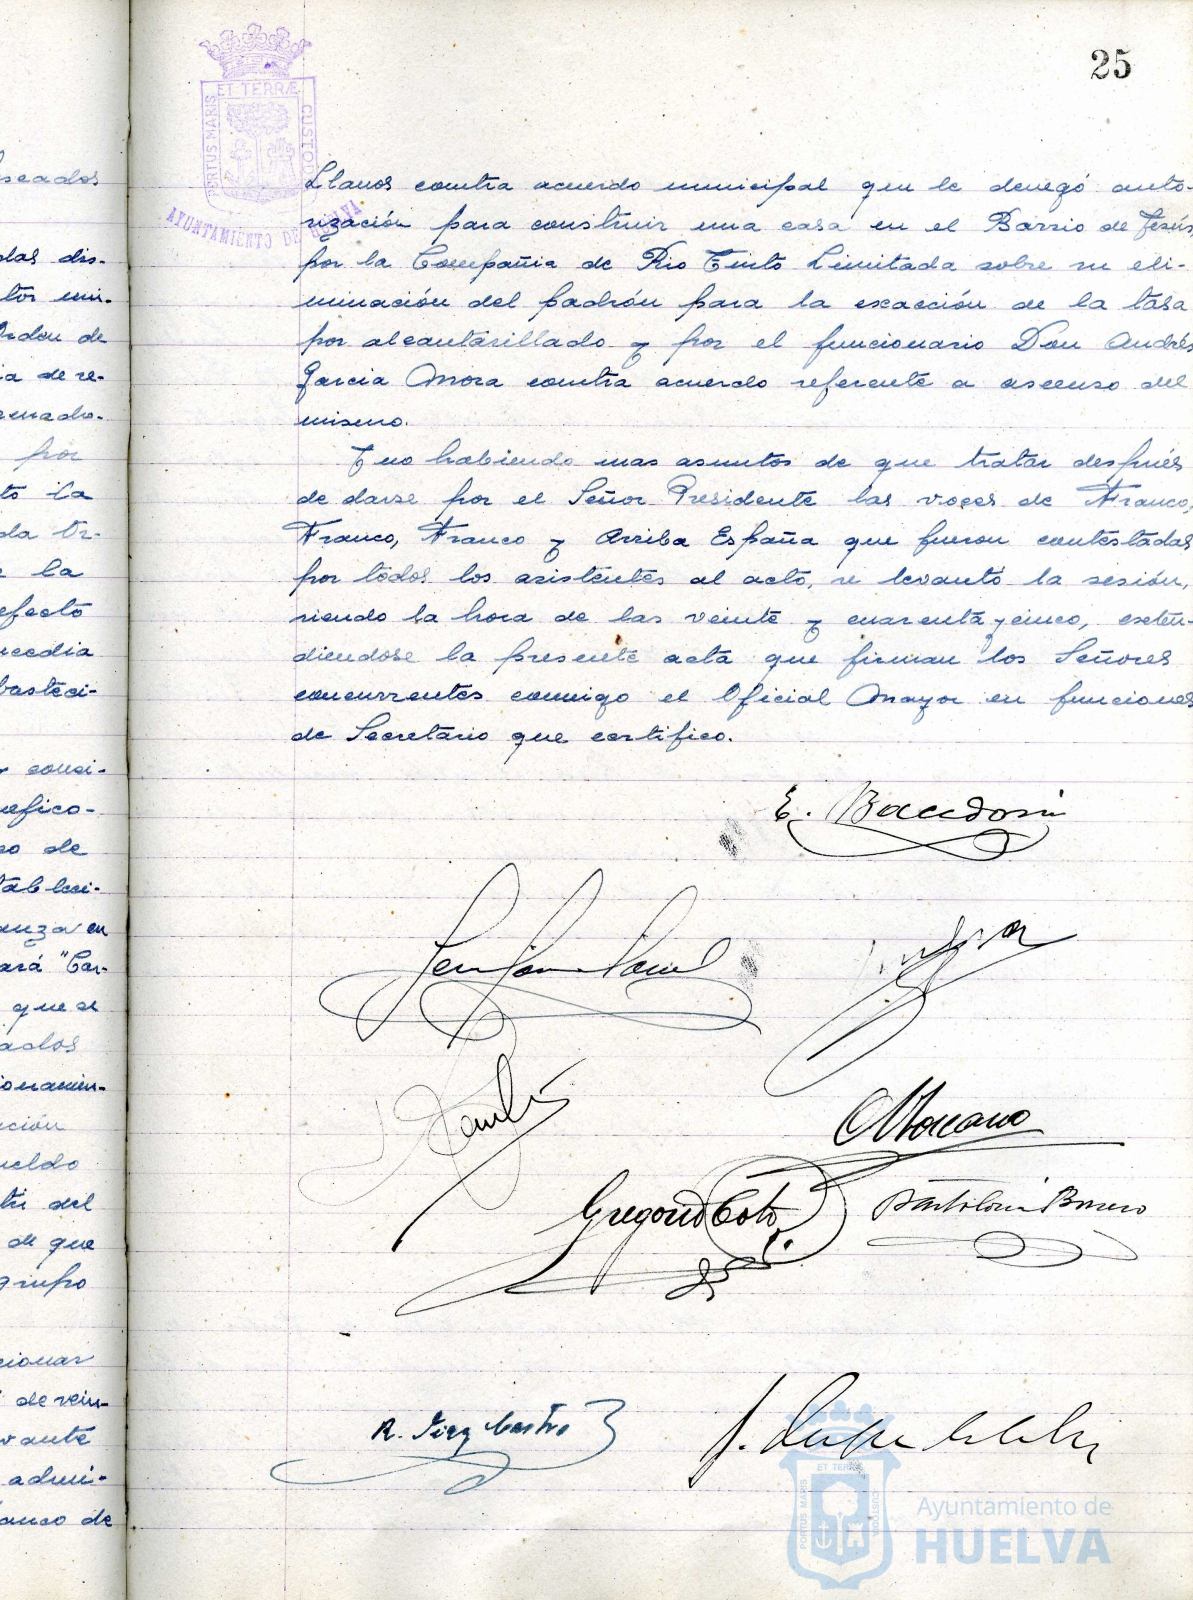 25
PORTUS MARIS ET TERRÆ CUSTODIA
AYUNTAMIENTO DE HUELVA
Llanos contra acuerdo municipal que le denegó auto-
rización para construir una casa en el Barrio de Jesús,
por la Compañia de Rio Tinto Limitada sobre su eli-
minación del padrón para la exacción de la tasa
por alcantarillado y por el funcionario Don Andrés
Garcia Mora contra acuerdo referente a ascenso del
mismo.
Y no habiendo mas asuntos de que tratar después
de darse por el Señor Presidente las voces de Franco,
Franco, Franco y Arriba España que fueron contestadas
por todos los asistentes al acto, se levantó la sesión,
siendo la hora de las veinte y cuarenta y cinco, exten-
diendose la presente acta que firman los Señores
concurrentes conmigo el Oficial Mayor en funciones
de Secretario que certifico.
E.
Gregorio Coto
R.
J.
seados
das dis-
Orden de
ia de re-
por
to la
la
efecto
basteci-
so de
tableci-
anza en
ará "Car-
que se
ción
ueldo
del
de que
grupo
cionar
de vein-
vante
admi-
de
PORTUS MARIS ET TERRÆ CUSTODIA
Ayuntamiento de
HUELVA